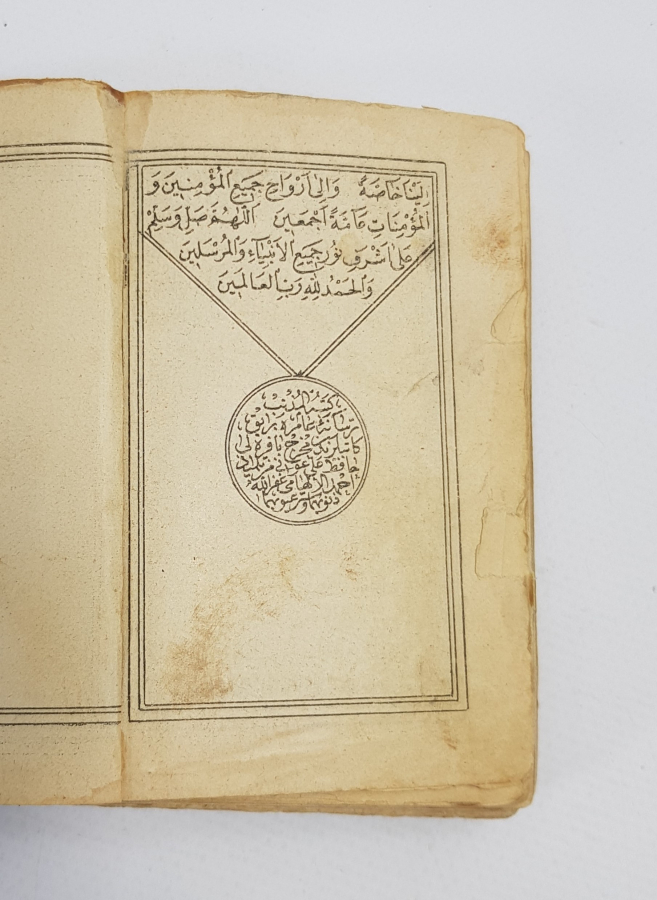 اِلَيْنَا خَاصَّةً وَاِلٰى اَرْوَاحِ جَمِيعِ الْمُؤْمِنِينَ وَ
الْمُؤْمِنَاتِ عَامَّةً اَجْمَعِينَ اَللّٰهُمَّ صَلِّ وَسَلِّمْ
عَلٰى اَشْرَفِ نُورِ جَمِيعِ الْاَنْبِيَاءِ وَالْمُرْسَلِينَ
وَالْحَمْدُ لِلّٰهِ رَبِّ الْعَالَمِينَ
كتبه المذنب
حافظ على
احمد الالهامى غفر الله
ذنوبهما وستر عيوبهما